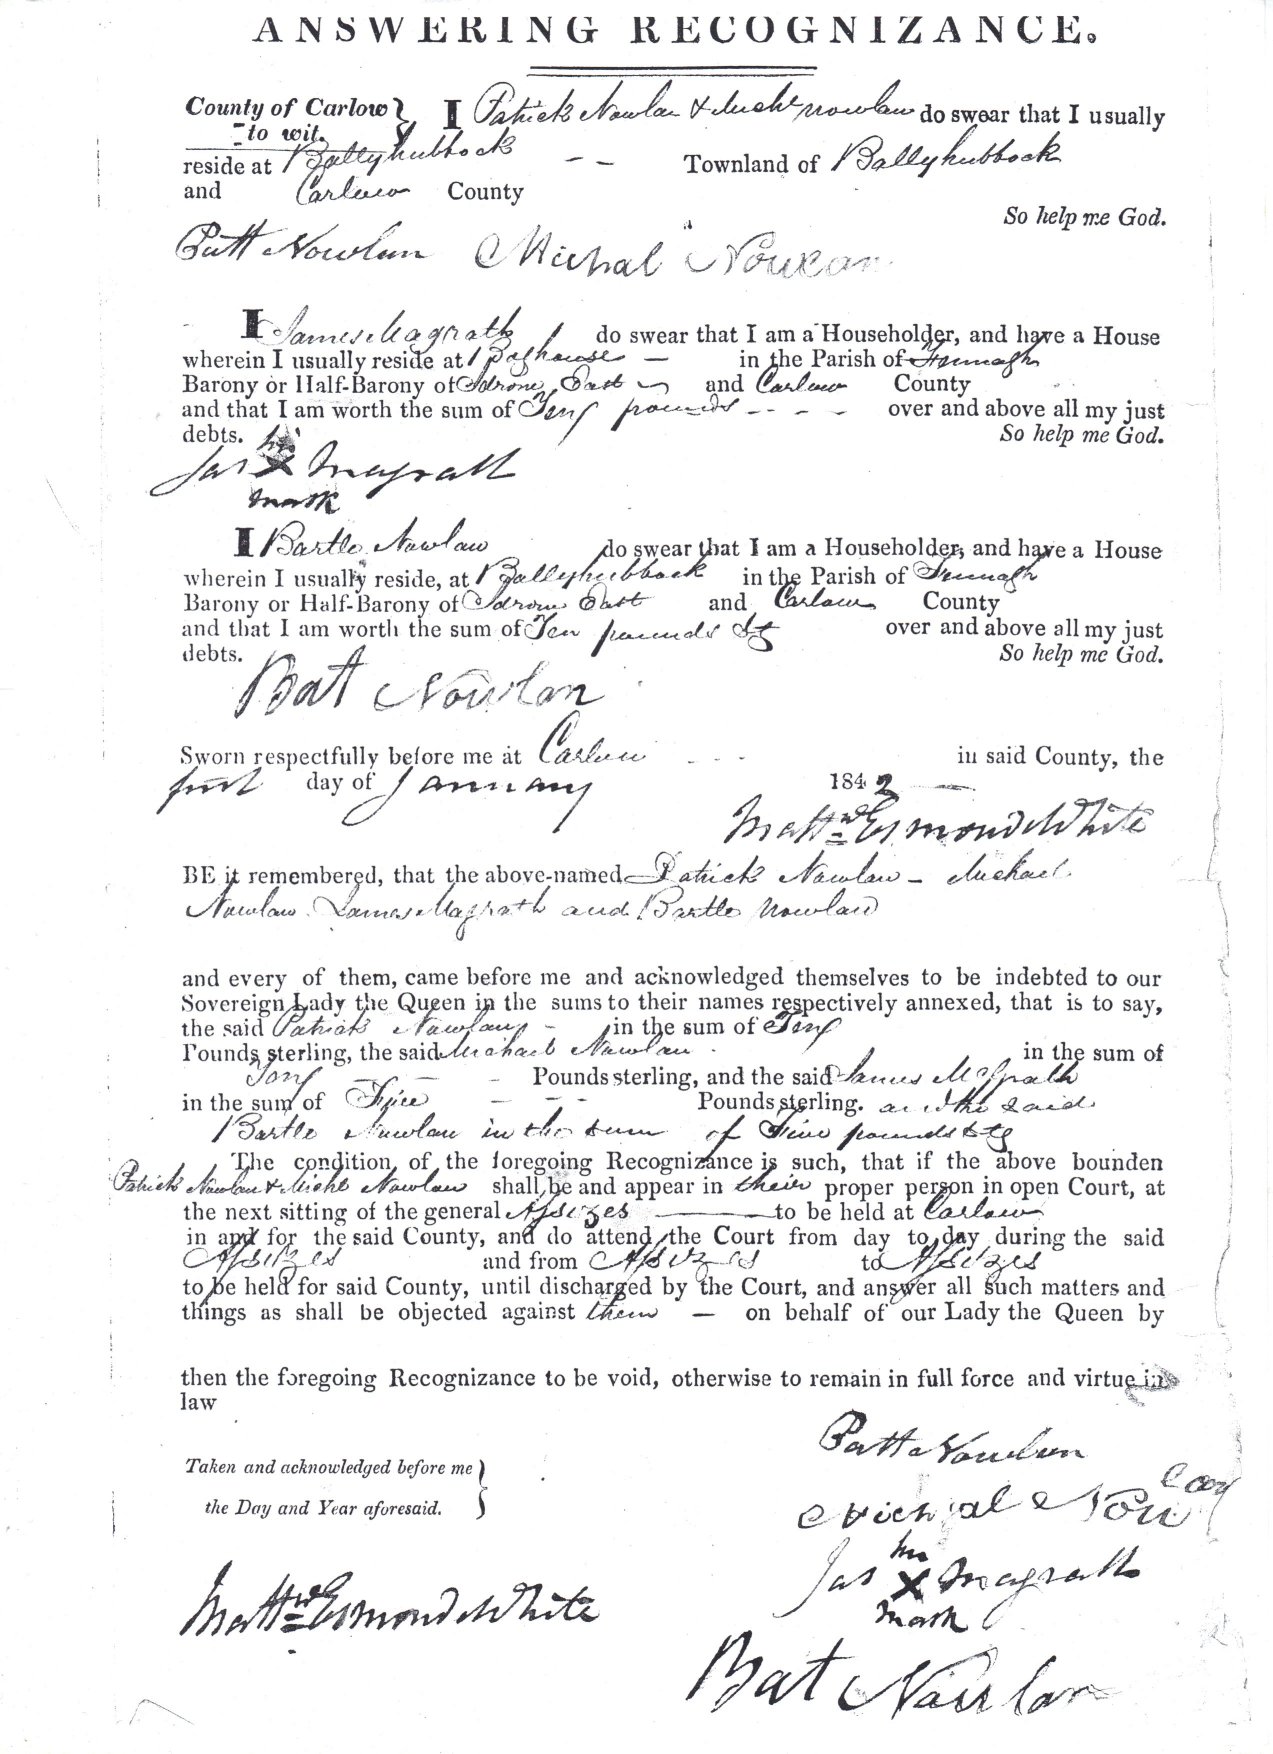 ANSWERING RECOGNIZANCE.
County of Carlow } I Patrick Nowlan & Michl Nowlan do swear that I usually
to wit.
reside at Ballyhubbock -- Townland of Ballyhubbock
and Carlow County
So help me God.
Patt Nowlan Michal Nowlan
I James Magrath do swear that I am a Householder, and have a House
wherein I usually reside at in the Parish of Fennagh
Barony or Half-Barony of Idrone East and Carlow County
and that I am worth the sum of Ten pounds ---- over and above all my just
debts. So help me God.
his
Jas X Magrath
mark
I Bartle Nowlan do swear that I am a Householder, and have a House
wherein I usually reside, at Ballyhubbock in the Parish of Fennagh
Barony or Half-Barony of Idrone East and Carlow County
and that I am worth the sum of Ten pounds Stg over and above all my just
debts. So help me God.
Bat Nowlan
Sworn respectfully before me at Carlow --- in said County, the
first day of January 1842
Mattw Esmond White
BE it remembered, that the above-named Patrick Nowlan - Michael
Nowlan James Magrath and Bartle Nowlan
and every of them, came before me and acknowledged themselves to be indebted to our
Sovereign Lady the Queen in the sums to their names respectively annexed, that is to say,
the said Patrick Nowlan - in the sum of Ten
Pounds sterling, the said Michael Nowlan in the sum of
Ten - Pounds sterling, and the said James McGrath
in the sum of Five --- Pounds sterling. and the said
Bartle Nowlan in the sum of Five pounds Stg
The condition of the foregoing Recognizance is such, that if the above bounden
Patrick Nowlan & Michl Nowlan shall be and appear in their proper person in open Court, at
the next sitting of the general Assizes to be held at Carlow
in and for the said County, and do attend the Court from day to day during the said
Assizes and from Assizes to Assizes
to be held for said County, until discharged by the Court, and answer all such matters and
things as shall be objected against them - on behalf of our Lady the Queen by
then the foregoing Recognizance to be void, otherwise to remain in full force and virtue in
law
Taken and acknowledged before me }
the Day and Year aforesaid.
Patt Nowlan
Michal Nowlan
his
Jas X Magrath
mark
Mattw Esmond White
Bat Nowlan